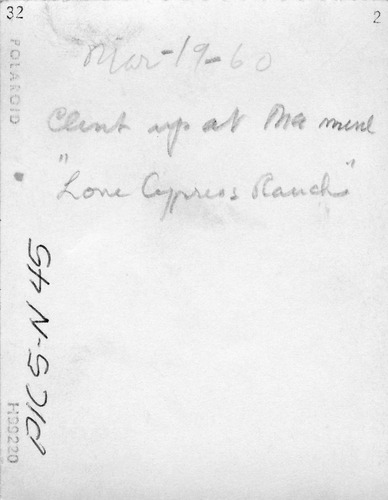 32
2
POLAROID
Mar-19-60
Clint up at the mine
"Lone Cypress Ranch"
PICS-N-45
H99220